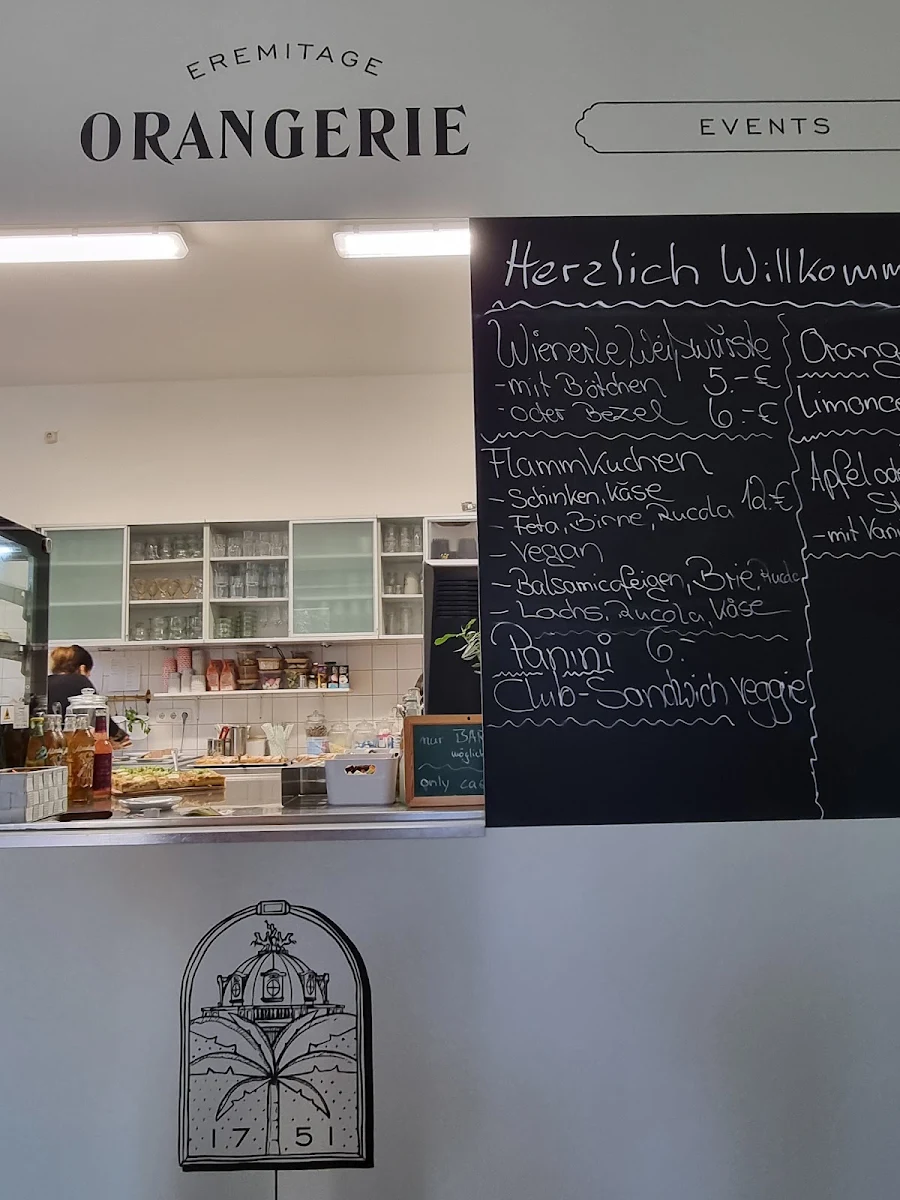 EREMITAGE
ORANGERIE
EVENTS
Herzlich Willkomm
Wienerle, Weißwürste
-mit Bötchen 5.-€
-oder Bezel 6.-€
Flammkuchen
- Schinken, Käse
- Feta, Birne, Rucola 12.€
- Vegan
- Balsamicofeigen, Brie, Rucola
- Lachs, Rucola, Käse
Panini 6.-
Club-Sandwich veggie
Orang
Limonce
Apfel ode
-mit Vani
nur BAR
möglich
only ca
17 51